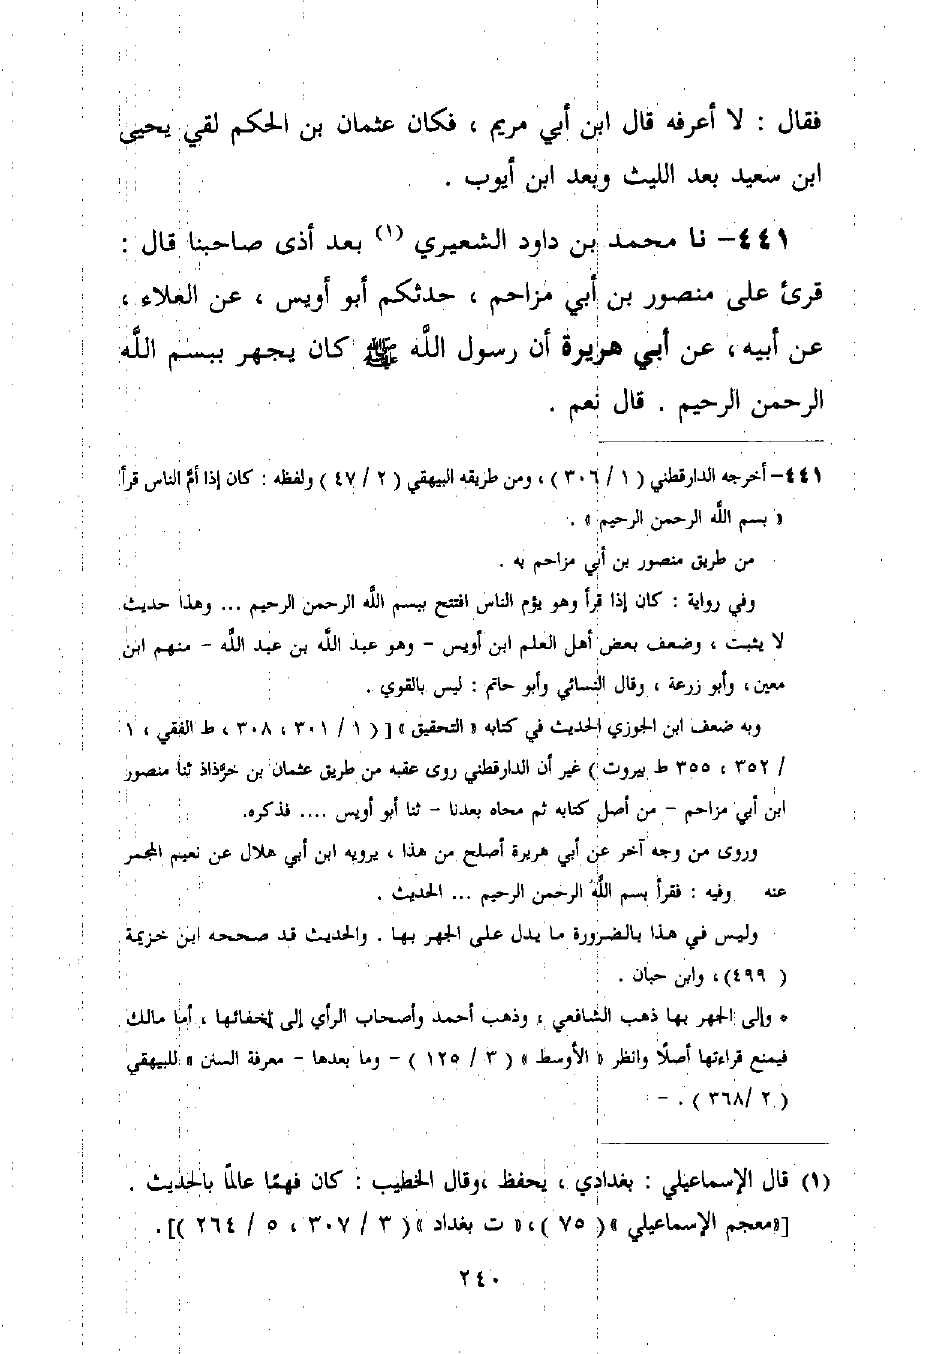 فقال : لا أعرفه قال ابن أبي مريم ، فكان عثمان بن الحكم لقي يحيى
ابن سعيد بعد الليث وبعد ابن أيوب .
٤٤١- نا محمد بن داود الشعيري (١) بعد أذى صاحبنا قال :
قرئ على منصور بن أبي مزاحم ، حدثكم أبو أويس ، عن العلاء ،
عن أبيه، عن أبي هريرة أن رسول الله ﷺ كان يجهر ببسم الله
الرحمن الرحيم . قال نعم .
٤٤١- أخرجه الدارقطني ( ١ / ٣٠٦ ) ، ومن طريقه البيهقي ( ٢ / ٤٧ ) ولفظه : كان إذا أمَّ الناس قرأ
« بسم الله الرحمن الرحيم » .
من طريق منصور بن أبي مزاحم به .
وفي رواية : كان إذا قرأ وهو يؤم الناس افتتح ببسم الله الرحمن الرحيم ... وهذا حديث
لا يثبت ، وضعف بعض أهل العلم ابن أويس - وهو عبد الله بن عبد الله - منهم ابن
معين، وأبو زرعة ، وقال النسائي وأبو حاتم : ليس بالقوي .
وبه ضعف ابن الجوزي الحديث في كتابه « التحقيق » [ ( ١ / ٣٠١ ، ٣٠٨ ، ط الفقي ، ١
/ ٣٥٢ ، ٣٥٥ ط بيروت ) غير أن الدارقطني روى عقبه من طريق عثمان بن خرَّذاذ ثنا منصور
ابن أبي مزاحم - من أصل كتابه ثم محاه بعدنا - ثنا أبو أويس .... فذكره.
وروى من وجه آخر عن أبي هريرة أصلح من هذا ، يرويه ابن أبي هلال عن نعيم المجمر
عنه وفيه : فقرأ بسم الله الرحمن الرحيم ... الحديث .
وليس في هذا بالضرورة ما يدل على الجهر بها . والحديث قد صححه ابن خزيمة
( ٤٩٩)، وابن حبان .
* وإلى الجهر بها ذهب الشافعي ، وذهب أحمد وأصحاب الرأي إلى إخفائها ، أما مالك
فيمنع قراءتها أصلًا وانظر « الأوسط » ( ٣ / ١٢٥ ) - وما بعدها - معرفة السنن » للبيهقي
( ٢ /٣٦٨ ) . -
(١) قال الإسماعيلي : بغدادي ، يحفظ ،وقال الخطيب : كان فهمًا عالمًا بالحديث .
[«معجم الإسماعيلي » ( ٧٥ )، « ت بغداد » ( ٣ / ٣٠٧ ، ٥ / ٢٦٤ )].
٢٤٠